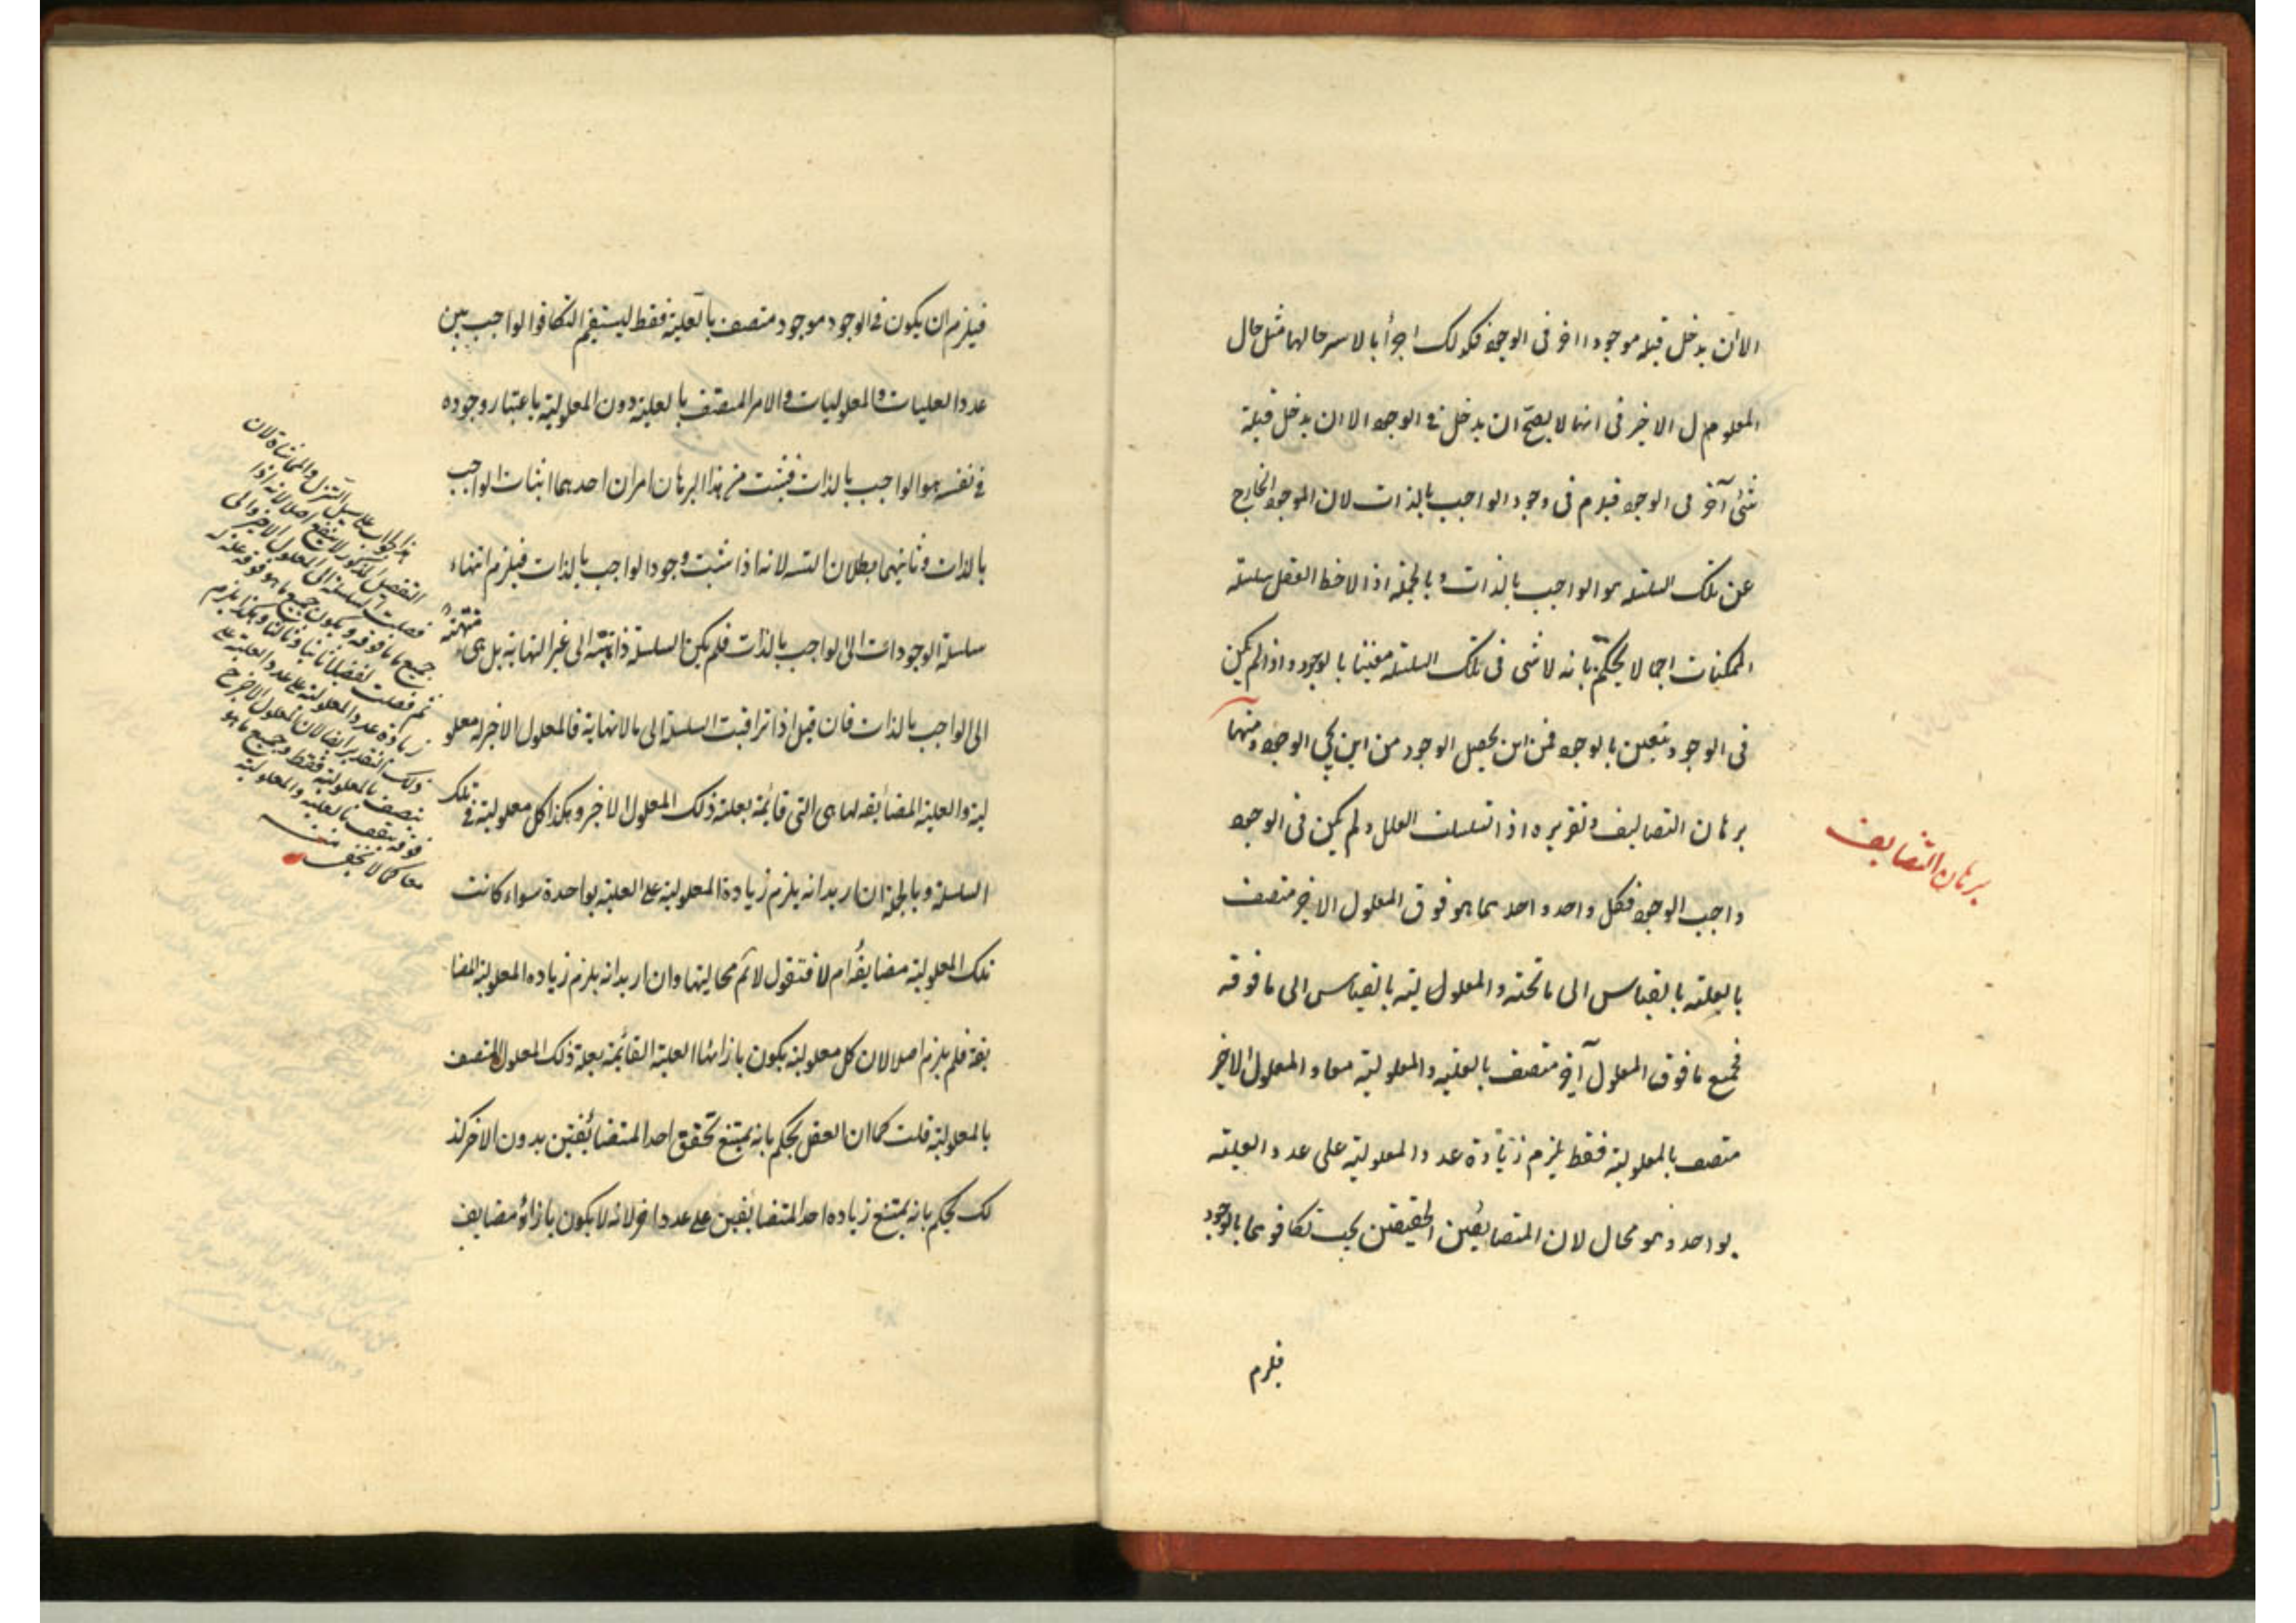 الا ان يدخل قبله موجودا اخر فى الوجود فكذلك اجزأ بالاسر حالها مثل حال
المعلول الاخير فى انها لا يصحّ ان يدخل فى الوجود الا ان يدخل قبله
شئ آخر فى الوجود فيلزم فى وجود الواجب بالذات لان الموجود الخارج
عن تلك السلسلة هو الواجب بالذات وبالجملة اذا لاحظ العقل سلسلة
الممكنات اجمالا يحكم بانه لا شى فى تلك السلسلة متعينا بالوجود واذا لم يكن
فى الوجود متعين بالوجود فمن اين يحصل الوجود من اين يجى الوجود ومنها
برهان التضايف وتقريره اذا تسلسلت العلل ولم يكن فى الوجود
واجب الوجود فكل واحد واحد مما هو فوق المعلول الاخير متصف
بالعلية بالقياس الى ما تحته والمعلولية بالقياس الى ما فوقه
فجميع ما فوق المعلول آخر متصف بالعلية والمعلولية معا و المعلول الاخير
متصف بالمعلولية فقط يلزم زيادة عدد المعلولية على عدد العلية
بواحد وهو محال لان المتضايفين الحقيقين يجب تكافوهما بالوجود
فيلزم
برهان التضايف
فيلزم ان يكون فى الوجود موجود متصف بالعلية فقط ليستقيم التكافوا الواجب بين
عدد العليات والمعلوليات والامر المتصف بالعلية دون المعلولية باعتبار وجوده
فى نفسه هو الواجب بالذات فيثبت من هذا البرهان امران احدهما اثبات الواجب
بالذات وثانيهما بطلان التسه لانه اذا ثبت وجود الواجب بالذات فيلزم انتهاء
سلسلة الوجودات الى الواجب بالذات فلم يكن السلسلة ذاهبة الى غير النهاية بل هى منتهية
الى الواجب بالذات فان قيل اذا تراقيت السلسلة الى مالانهاية فالمعلول الاخير له معلو
لية والعلية المضائفه لها هى التى قائمة بعلة ذلك المعلول الاخر وهكذا كل معلولية فى تلك
السلسلة وبالجملة ان اريد انه يلزم زيادة المعلولية على العلية بواحدة سواء كانت
تلك المعلولية مضايفة ام لا فنقول لا ثم محاليتها وان اريد انه يلزم زياده المعلولية المضا
يفة فلم يلزم اصلا لان كل معلولية يكون بازائها العلية القائمة بعلة ذلك المعلول المتصف
بالمعلولية قلت كما ان العقل يحكم بانه يمتنع تحقق احد المتضائفين بدون الاخر كذ
لك يحكم بانه يمتنع زياده احد المتضايفين على عدد اخر لانه لا يكون بازاؤه مضايف
هذا الجواب على سبيل التنزل والمماشاة لان
التفصيل المذكور لا ينفع اصلا لانه اذا
فصلت السلسلة الى المعلول الاخير والى
جميع ما فوقه ويكون جميع ما هو فوقه علة له
ثم فصلت تفصيلا ثانيا وثالثا وهكذا يلزم
زيادة عدد المعلولية على عدد العلية على
ذلك التقدير ايضا لان المعلول الاخير ح
يتصف بالمعلولية فقط وجميع ما هو
فوقه يتصف بالعلية والمعلولية
معا كما لا يخفى منه